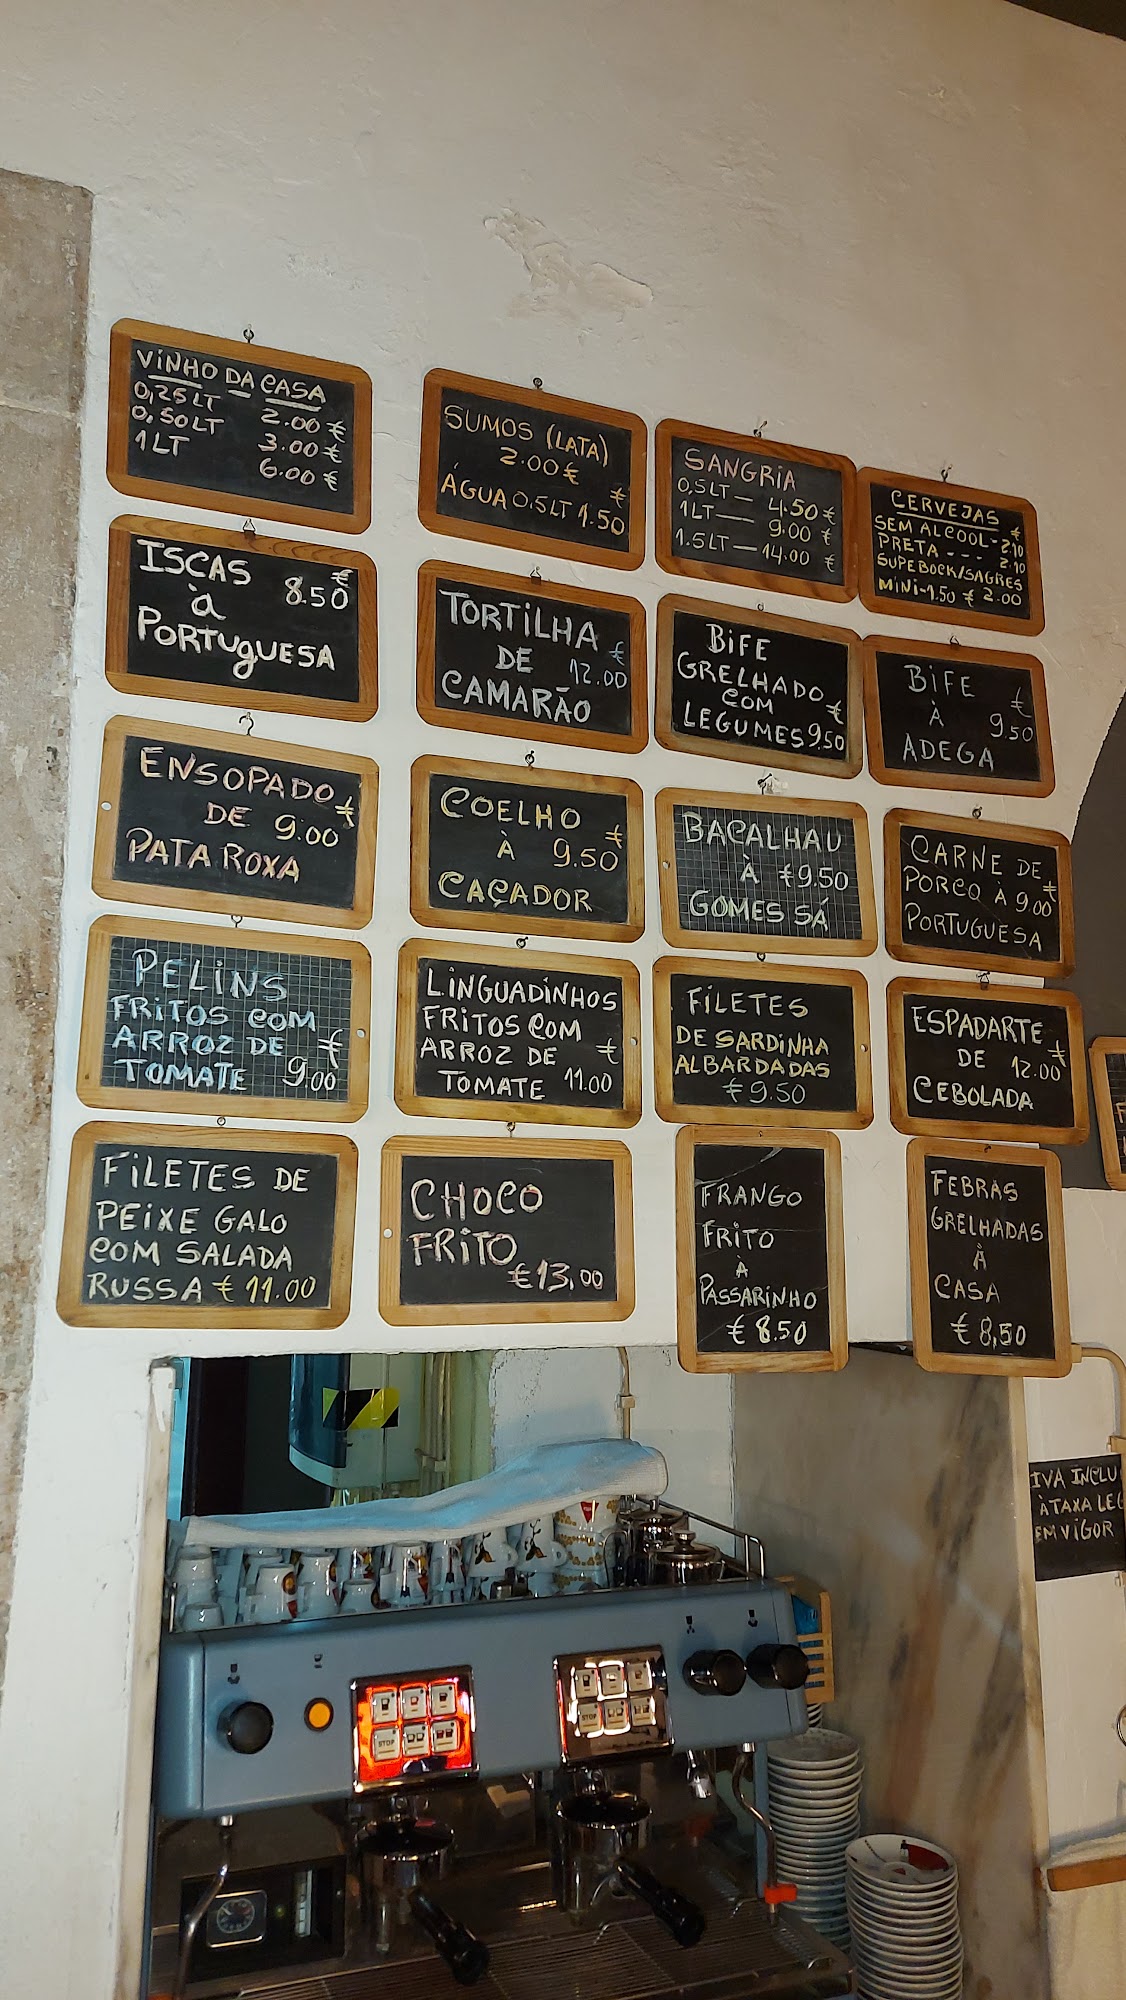 VINHO DA CASA
0,25LT 2.00 €
0,50LT 3.00 €
1LT 6.00 €
SUMOS (LATA)
2.00 €
€
ÁGUA 0.5LT 1.50
SANGRIA
0,5LT — 4.50 €
1LT — 9.00 €
1.5LT — 14.00 €
CERVEJAS €
SEM ALCOOL - 2.10
PRETA - - - 2.10
SUPEBOCK/SAGRES
MINI - 1.50 € 2.00
ISCAS €
à 8.50
PORTUGUESA
TORTILHA €
DE 12.00
CAMARÃO
BIFE
GRELHADO
COM €
LEGUMES 9.50
BIFE €
À 9.50
ADEGA
ENSOPADO €
DE 9.00
PATA ROXA
COELHO €
À 9.50
CAÇADOR
BACALHAU
À €9.50
GOMES SÁ
CARNE DE €
PORCO À 9.00
PORTUGUESA
PELINS
FRITOS COM
ARROZ DE €
TOMATE 9.00
LINGUADINHOS
FRITOS COM
ARROZ DE €
TOMATE 11.00
FILETES
DE SARDINHA
ALBARDADAS
€ 9.50
ESPADARTE €
DE 12.00
CEBOLADA
FILETES DE
PEIXE GALO
COM SALADA
RUSSA € 11.00
CHOCO
FRITO
€ 13,00
FRANGO
FRITO
À
PASSARINHO
€ 8.50
FEBRAS
GRELHADAS
À
CASA
€ 8,50
IVA INCLU
À TAXA LEG
EM VIGOR
STOP
STOP